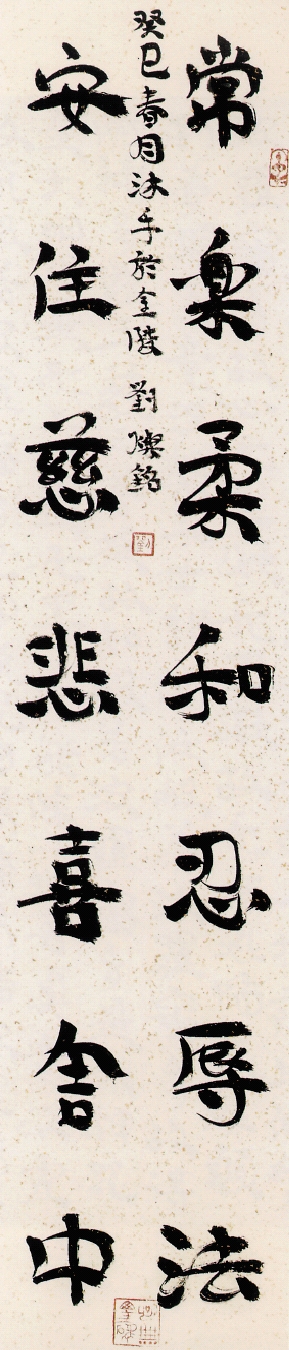 常樂柔和忍辱法
安住慈悲喜舍中
癸巳春月沐手於金陵 劉